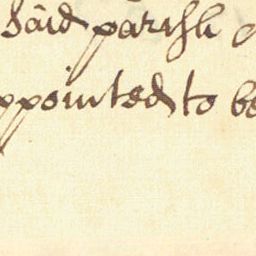 said parish
ppointed to be